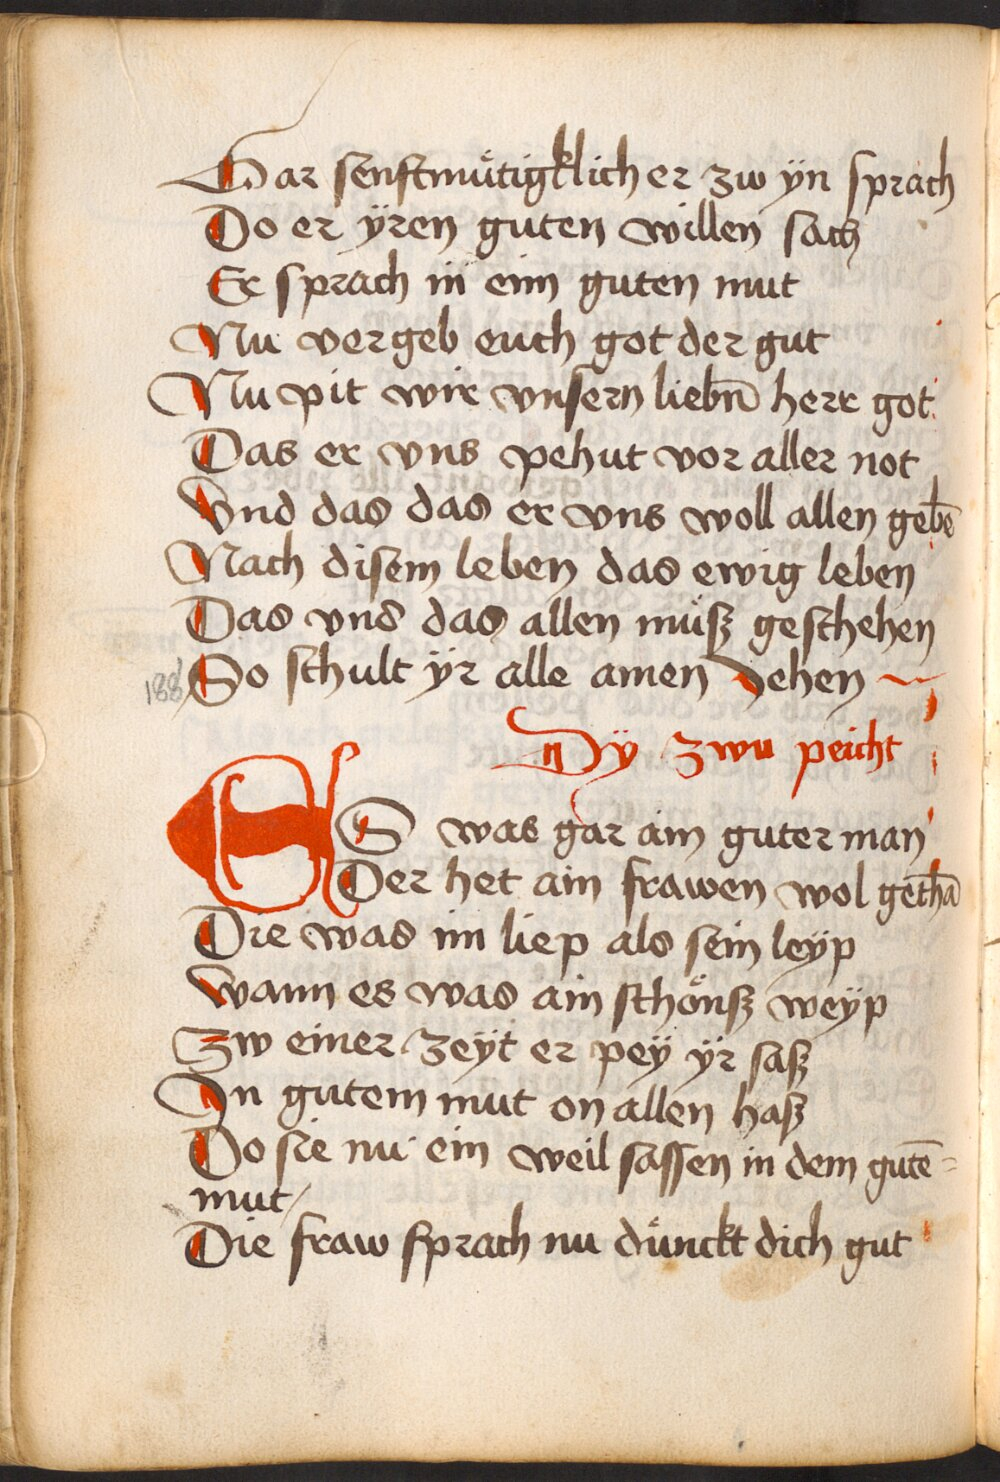 Gar senftmuͤtigklich er zw ÿn sprach
Do er ÿren guten willen sach
Er sprach in eim guten mut
Nu vergeb euch got der gut
Nu pit wir vnsern liebn̄ herr got
Das er vns pehut vor aller not
Vnd das das er vns woll allen gebē
Nach disem leben das ewig leben
Das vns das allen muͤß geschehen
188 So schult ÿr alle amen Jehen
Dÿ zwu peicht
ES was gar ain guter man
Der het ain frawen wol gethā
Die was im liep als sein leÿp
Wann es was ain schoͤnß weÿp
Zw einer zeÿt er peÿ ÿr saß
In gutem mut on allen haß
Do sie nu ein weil sassen in dem gutē =
mut /
Die fraw sprach nu duͤnckt dich gut